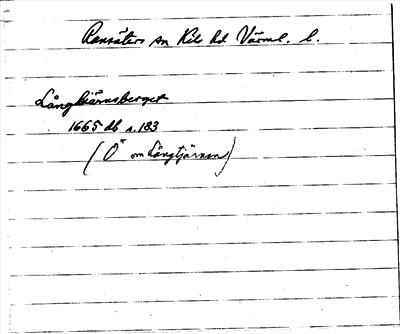 Ransäters sn Kils hd Värml. l.
Långkiärnsberget
1665 db s. 183
(Ö om Långtjärnen)